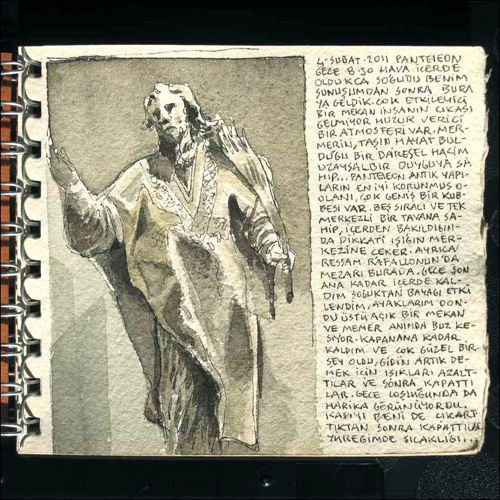 4-ŞUBAT-2011 PANTEİEON
GECE 8.30 HAVA İÇERDE
OLDUKÇA SOĞUDU BENİM
SUNUŞUMDAN SONRA BURA
YA GELDİK. ÇOK ETKİLEYİCİ
BİR MEKAN İNSANIN ÇIKASI
GELMİYOR HUZUR VERİCİ
BİR ATMOSFERİ VAR. MER-
MERİN, TAŞIN HAYAT BUL-
DUĞU BİR DAİRESEL HACİM
UZAYSAL BİR DUYGUYA SA
HİP. PANTEİEON ANTİK YAPI-
LARIN EN İYİ KORUNMUŞ O-
OLANI, ÇOK GENİŞ BİR KUB-
BESİ VAR. BEŞ SIRALI VE TEK
MERKEZLİ BİR TAVANA SA-
HİP, İÇERDEN BAKILDIĞIN-
DA DİKKATİ IŞIĞIN MER-
KEZİNE ÇEKER. AYRICA
RESSAM RAFAELLONUN'DA
MEZARI BURADA, GECE SON
ANA KADAR İÇERDE KAL-
DIM SOĞUKTAN BAYAĞI ETKİ
LENDİM, AYAKLARIM DON-
DU ÜSTÜ AÇIK BİR MEKAN
VE MEMER ANINDA BUZ KE-
SİYOR. KAPANANA KADAR
KALDIM VE ÇOK GÜZEL BİR-
ŞEY OLDU, GİDİN ARTIK DE-
MEK İÇİN IŞIKLARI AZALT-
TILAR VE SONRA KAPATTI
LAR. GECE LOŞLUĞUNDA DA
HARİKA GÖRÜNÜYORDU.
KAPIYI BENİ DE ÇIKART
TIKTAN SONRA KAPATTILAR
YÜREĞİMDE SICAKLIĞI...